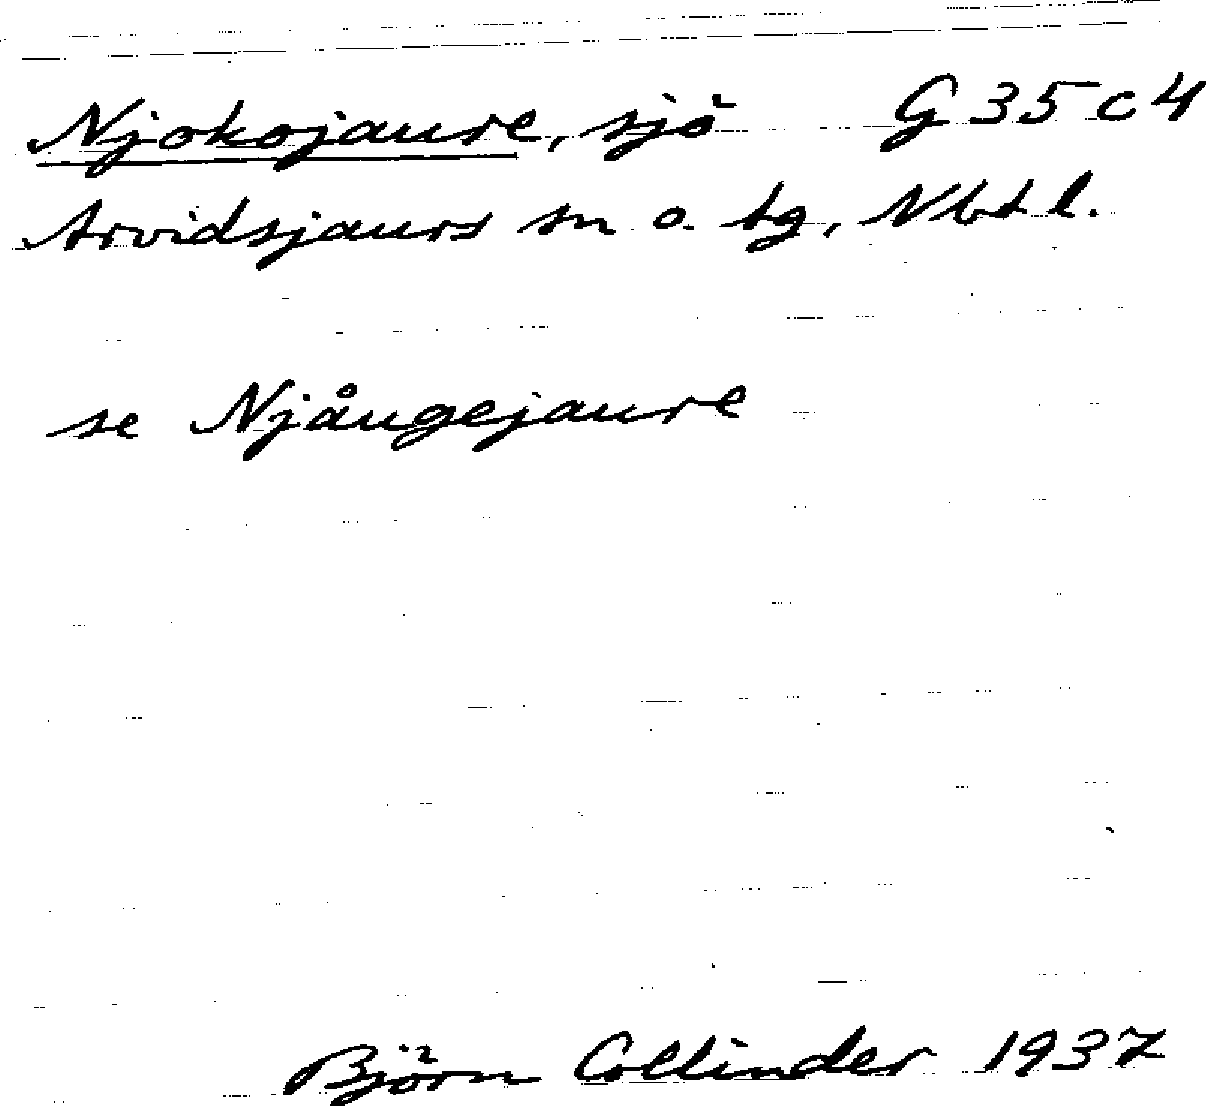 Njokojaure, sjö G 35 c 4
Arvidsjaurs sn o. tg, Nbtl.
se Njångejaure
Björn Collinder 1937